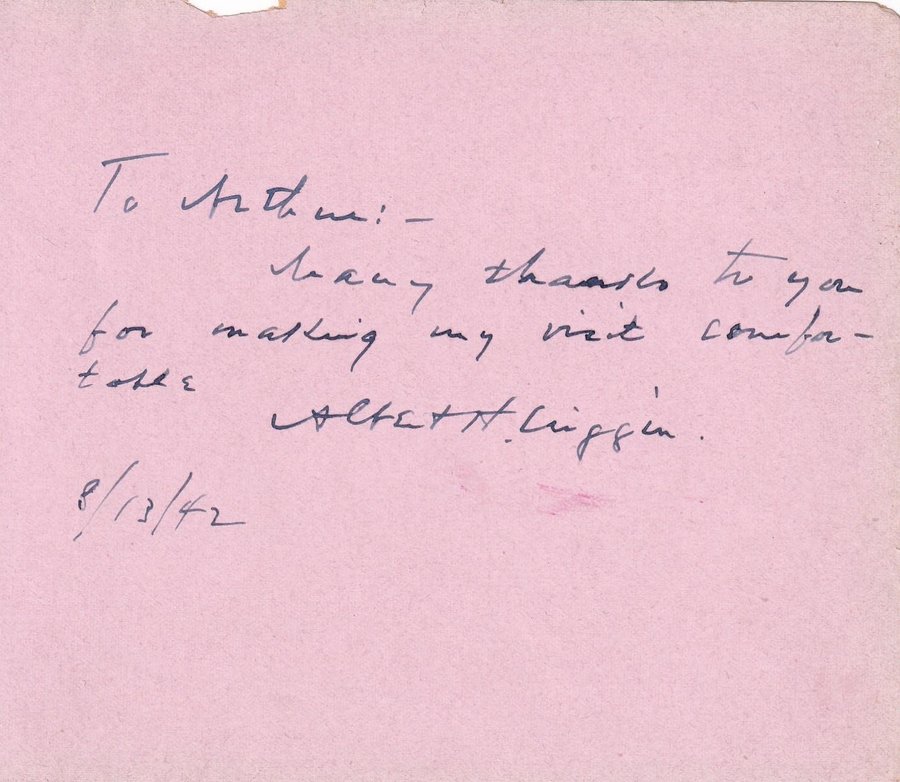 To Arthur:-
Many thanks to you
for making my visit comfor-
table
Albert H.
8/13/42